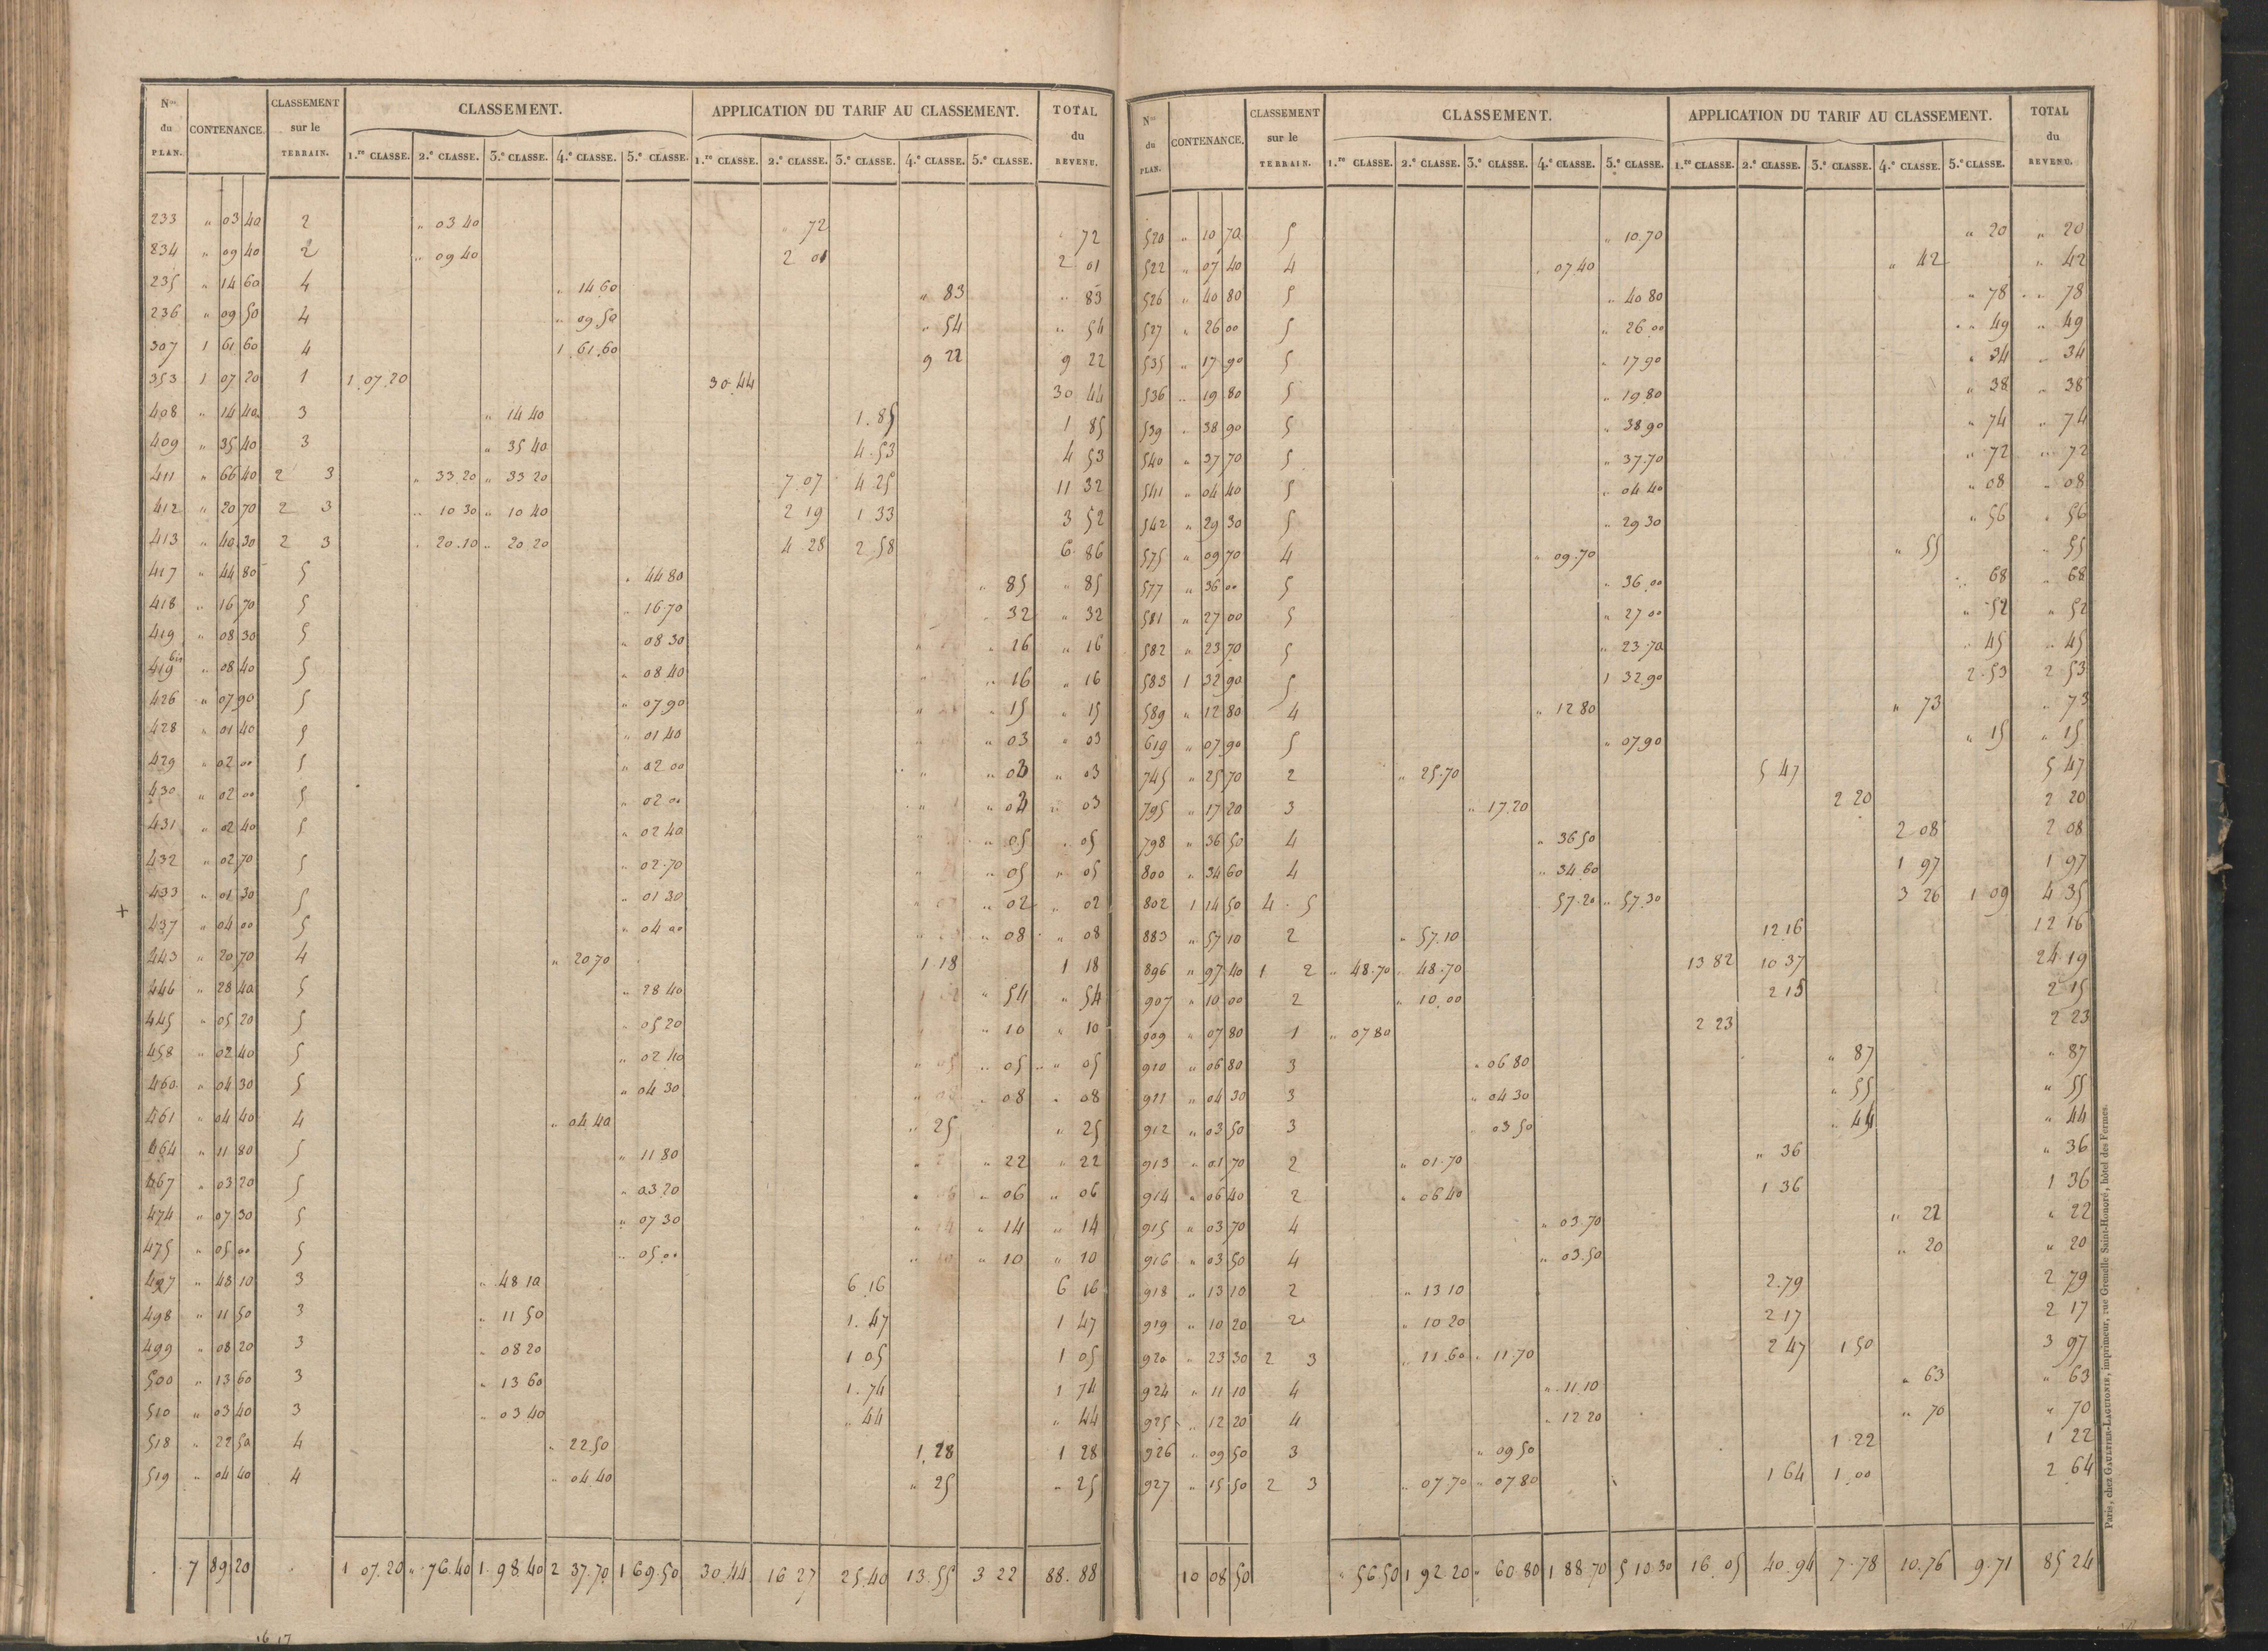 N.os du PLAN. CONTENANCE. CLASSEMENT sur le TERRAIN. CLASSEMENT. APPLICATION DU TARIF AU CLASSEMENT. TOTAL du REVENU.
1.re CLASSE. 2.e CLASSE. 3.e CLASSE. 4.e CLASSE. 5.e CLASSE. 1.re CLASSE. 2.e CLASSE. 3.e CLASSE. 4.e CLASSE. 5.e CLASSE.
233 " 03 40 2 " 03 40 " 72 " 72
834 " 09 40 2 " 09 40 2 01 2 01
235 " 14 60 4 " 14 60 " 83 " 83
236 " 09 50 4 " 09 50 " 54 " 54
307 1 61 60 4 1 61 60 9 22 9 22
353 1 07 20 1 1 07 20 30 44 30 44
408 " 14 40 3 " 14 40 1 85 1 85
409 " 35 40 3 " 35 40 4 53 4 53
411 " 66 40 2 3 " 33 20 " 33 20 7 07 4 25 11 32
412 " 20 70 2 3 " 10 30 " 10 40 2 19 1 33 3 52
413 " 40 30 2 3 " 20 10 " 20 20 4 28 2 58 6 86
417 " 44 80 5 " 44 80 " 85 " 85
418 " 16 70 5 " 16 70 " 32 " 32
419 " 08 30 5 " 08 30 " 16 " 16
419 bis " 08 40 5 " 08 40 " 16 " 16
426 " 07 90 5 " 07 90 " 15 " 15
428 " 01 40 5 " 01 40 " 03 " 03
429 " 02 00 5 " 02 00 " 03 " 03
430 " 02 00 5 " 02 00 " 03 " 03
431 " 02 40 5 " 02 40 " 05 " 05
432 " 02 70 5 " 02 70 " 05 " 05
+ 433 " 01 30 5 " 01 30 " 02 " 02
437 " 04 00 5 " 04 00 " 08 " 08
443 " 20 70 4 " 20 70 1 18 1 18
446 " 28 40 5 " 28 40 " 54 " 54
445 " 05 20 5 " 05 20 " 10 " 10
458 " 02 40 5 " 02 40 " 05 " 05
460 " 04 30 5 " 04 30 " 08 " 08
461 " 04 40 4 " 04 40 " 25 " 25
464 " 11 80 5 " 11 80 " 22 " 22
467 " 03 20 5 " 03 20 " 06 " 06
474 " 07 30 5 " 07 30 " 14 " 14
475 " 05 00 5 " 05 00 " 10 " 10
497 " 48 10 3 " 48 10 6 16 6 16
498 " 11 50 3 " 11 50 1 47 1 47
499 " 08 20 3 " 08 20 1 05 1 05
500 " 13 60 3 " 13 60 1 74 1 74
510 " 03 40 3 " 03 40 " 44 " 44
518 " 22 50 4 " 22 50 1 28 1 28
519 " 04 40 4 " 04 40 " 25 " 25
7 89 20 1 07 20 " 76 40 1 98 40 2 37 70 1 69 50 30 44 16 27 25 40 13 55 3 22 88 88
N.os du PLAN. CONTENANCE. CLASSEMENT sur le TERRAIN. CLASSEMENT. APPLICATION DU TARIF AU CLASSEMENT. TOTAL du REVENU.
1.re CLASSE. 2.e CLASSE. 3.e CLASSE. 4.e CLASSE. 5.e CLASSE. 1.re CLASSE. 2.e CLASSE. 3.e CLASSE. 4.e CLASSE. 5.e CLASSE.
520 " 10 70 5 " 10 70 " 20 " 20
522 " 07 40 4 " 07 40 " 42 " 42
526 " 40 80 5 " 40 80 " 78 " 78
527 " 26 00 5 " 26 00 " 49 " 49
535 " 17 90 5 " 17 90 " 34 " 34
536 " 19 80 5 " 19 80 " 38 " 38
539 " 38 90 5 " 38 90 " 74 " 74
540 " 37 70 5 " 37 70 " 72 " 72
541 " 04 40 5 " 04 40 " 08 " 08
542 " 29 30 5 " 29 30 " 56 " 56
575 " 09 70 4 " 09 70 " 55 " 55
577 " 36 00 5 " 36 00 " 68 " 68
581 " 27 00 5 " 27 00 " 52 " 52
582 " 23 70 5 " 23 70 " 45 " 45
583 1 32 90 5 1 32 90 2 53 2 53
589 " 12 80 4 " 12 80 " 73 " 73
619 " 07 90 5 " 07 90 " 15 " 15
745 " 25 70 2 " 25 70 5 47 5 47
795 " 17 20 3 " 17 20 2 20 2 20
798 " 36 50 4 " 36 50 2 08 2 08
800 " 34 60 4 " 34 60 1 97 1 97
802 1 14 50 4 5 57 20 " 57 30 3 26 1 09 4 35
883 " 57 10 2 " 57 10 12 16 12 16
896 " 97 40 1 2 " 48 70 " 48 70 13 82 10 37 24 19
907 " 10 00 2 " 10 00 2 15 2 15
909 " 07 80 1 " 07 80 2 23 2 23
910 " 06 80 3 " 06 80 " 87 " 87
911 " 04 30 3 " 04 30 " 55 " 55
912 " 03 50 3 " 03 50 " 44 " 44
913 " 01 70 2 " 01 70 " 36 " 36
914 " 06 40 2 " 06 40 1 36 1 36
915 " 03 70 4 " 03 70 " 22 " 22
916 " 03 50 4 " 03 50 " 20 " 20
918 " 13 10 2 " 13 10 2 79 2 79
919 " 10 20 2 " 10 20 2 17 2 17
920 " 23 30 2 3 " 11 60 " 11 70 2 47 1 50 3 97
924 " 11 10 4 " 11 10 " 63 " 63
925 " 12 20 4 " 12 20 " 70 " 70
926 " 09 50 3 " 09 50 1 22 1 22
927 " 15 50 2 3 " 07 70 " 07 80 1 64 1 00 2 64
10 08 50 " 56 50 1 92 20 " 60 80 1 88 70 5 10 30 16 05 40 94 7 78 10 76 9 71 85 24
Paris, chez GAULTIER-LAGUIONIE, imprimeur, rue Grenelle Saint-Honoré, hôtel des Fermes.